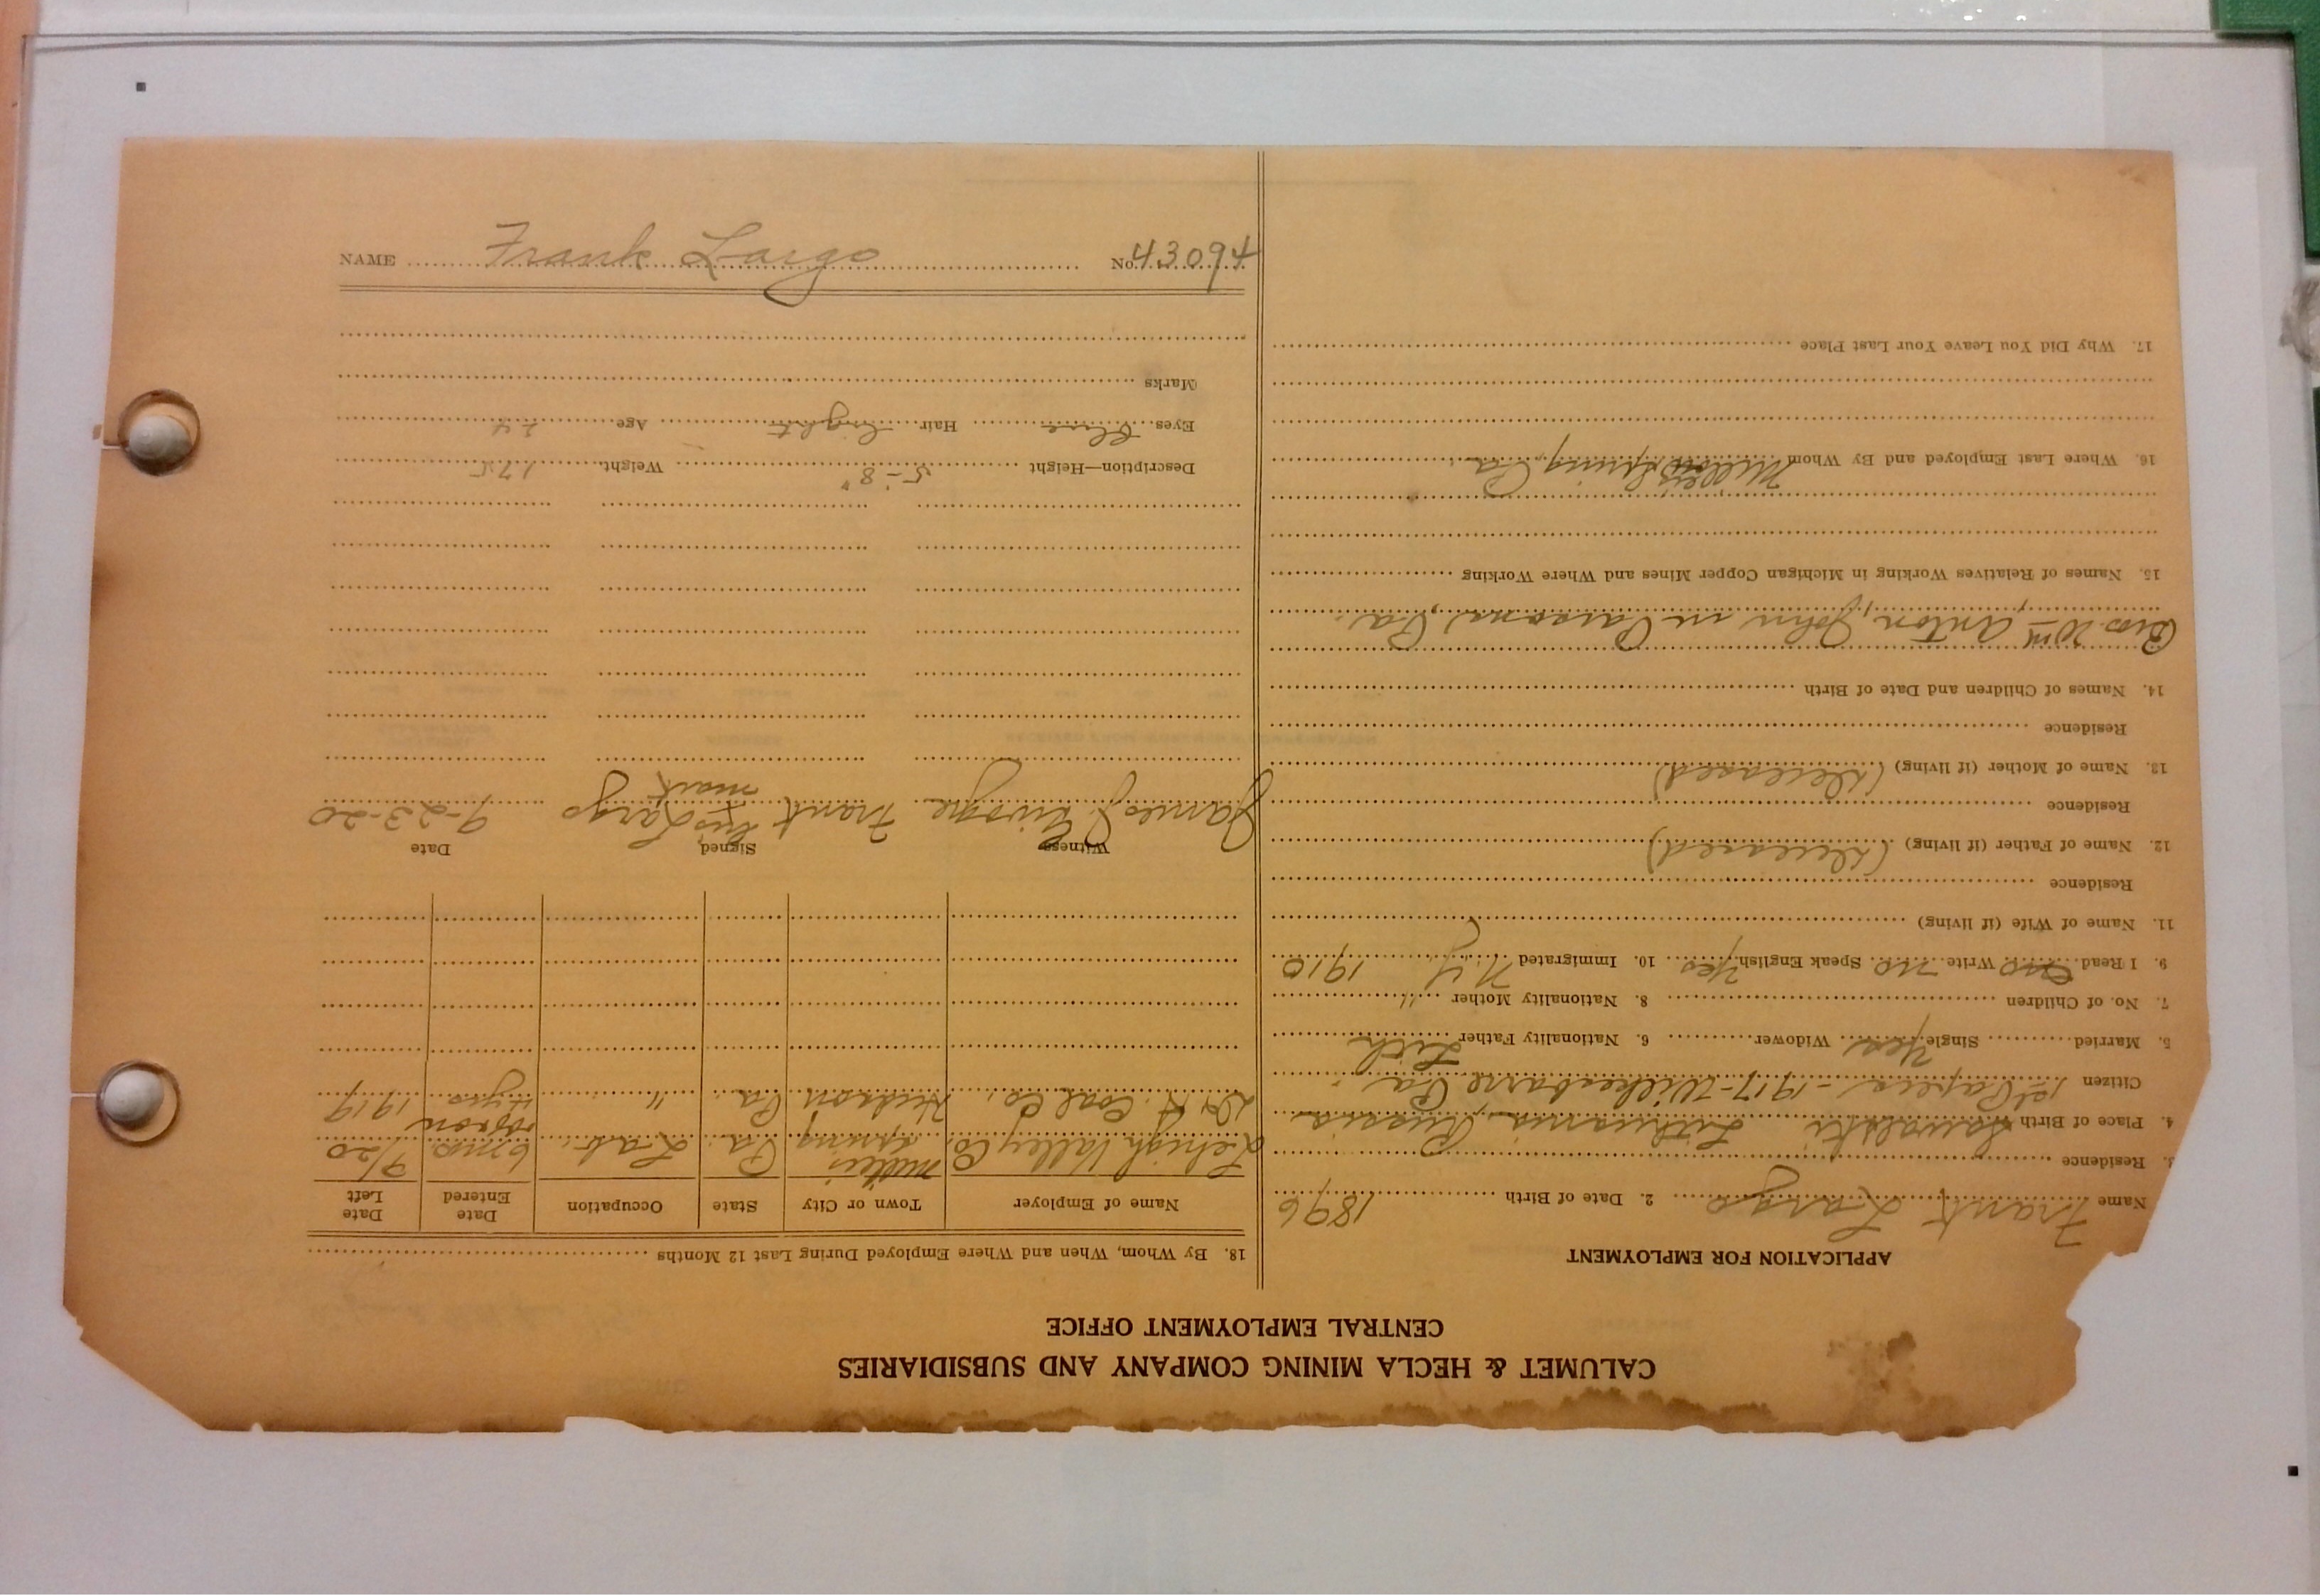 CALUMET & HECLA MINING COMPANY AND SUBSIDIARIES
CENTRAL EMPLOYMENT OFFICE
APPLICATION FOR EMPLOYMENT
Name Frank Largo 2. Date of Birth 1896
3. Residence
4. Place of Birth Suwalski Lithuania, Russia
Citizen 1st Papers - 1917 - Wilkesbarre Pa
5. Married Single Yes Widower 6. Nationality Father Lith
7. No. of Children 8. Nationality Mother "
9. I Read no Write no Speak English Yes 10. Immigrated N.Y. 1910
11. Name of Wife (if living)
Residence
12. Name of Father (if living) (deceased)
Residence
13. Name of Mother (if living) (deceased)
Residence
14. Names of Children and Date of Birth
Bros. Wm Anton, John in Parsons, Pa.
15. Names of Relatives Working in Michigan Copper Mines and Where Working
16. Where Last Employed and By Whom Millers Spring, Pa
17. Why Did You Leave Your Last Place
18. By Whom, When and Where Employed During Last 12 Months
Name of Employer Town or City State Occupation Date Entered Date Left
Lehigh Valley Co. Millers Spring Pa. Lab. 6 mo. 9/20
D & H. Coal Co. Hudson Pa. " 4 yrs 1919
Witness Signed Date
James J. Frank his Largo 9-23-20
mark
Description—Height 5-8" Weight 175
Eyes Blue Hair light Age 24
Marks
NAME Frank Largo No. 43094